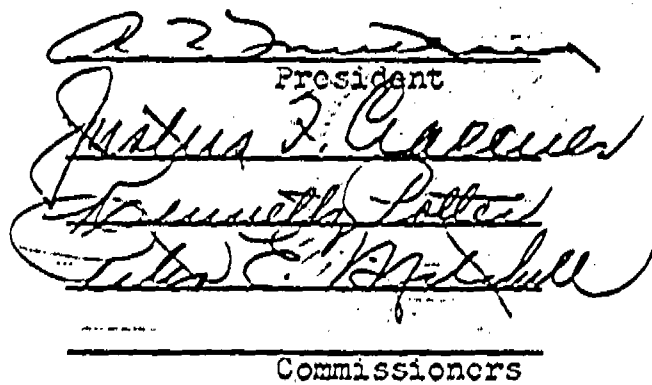 President
Justus F. Craemer
Kenneth Potter
Peter E. Mitchell
Commissioners